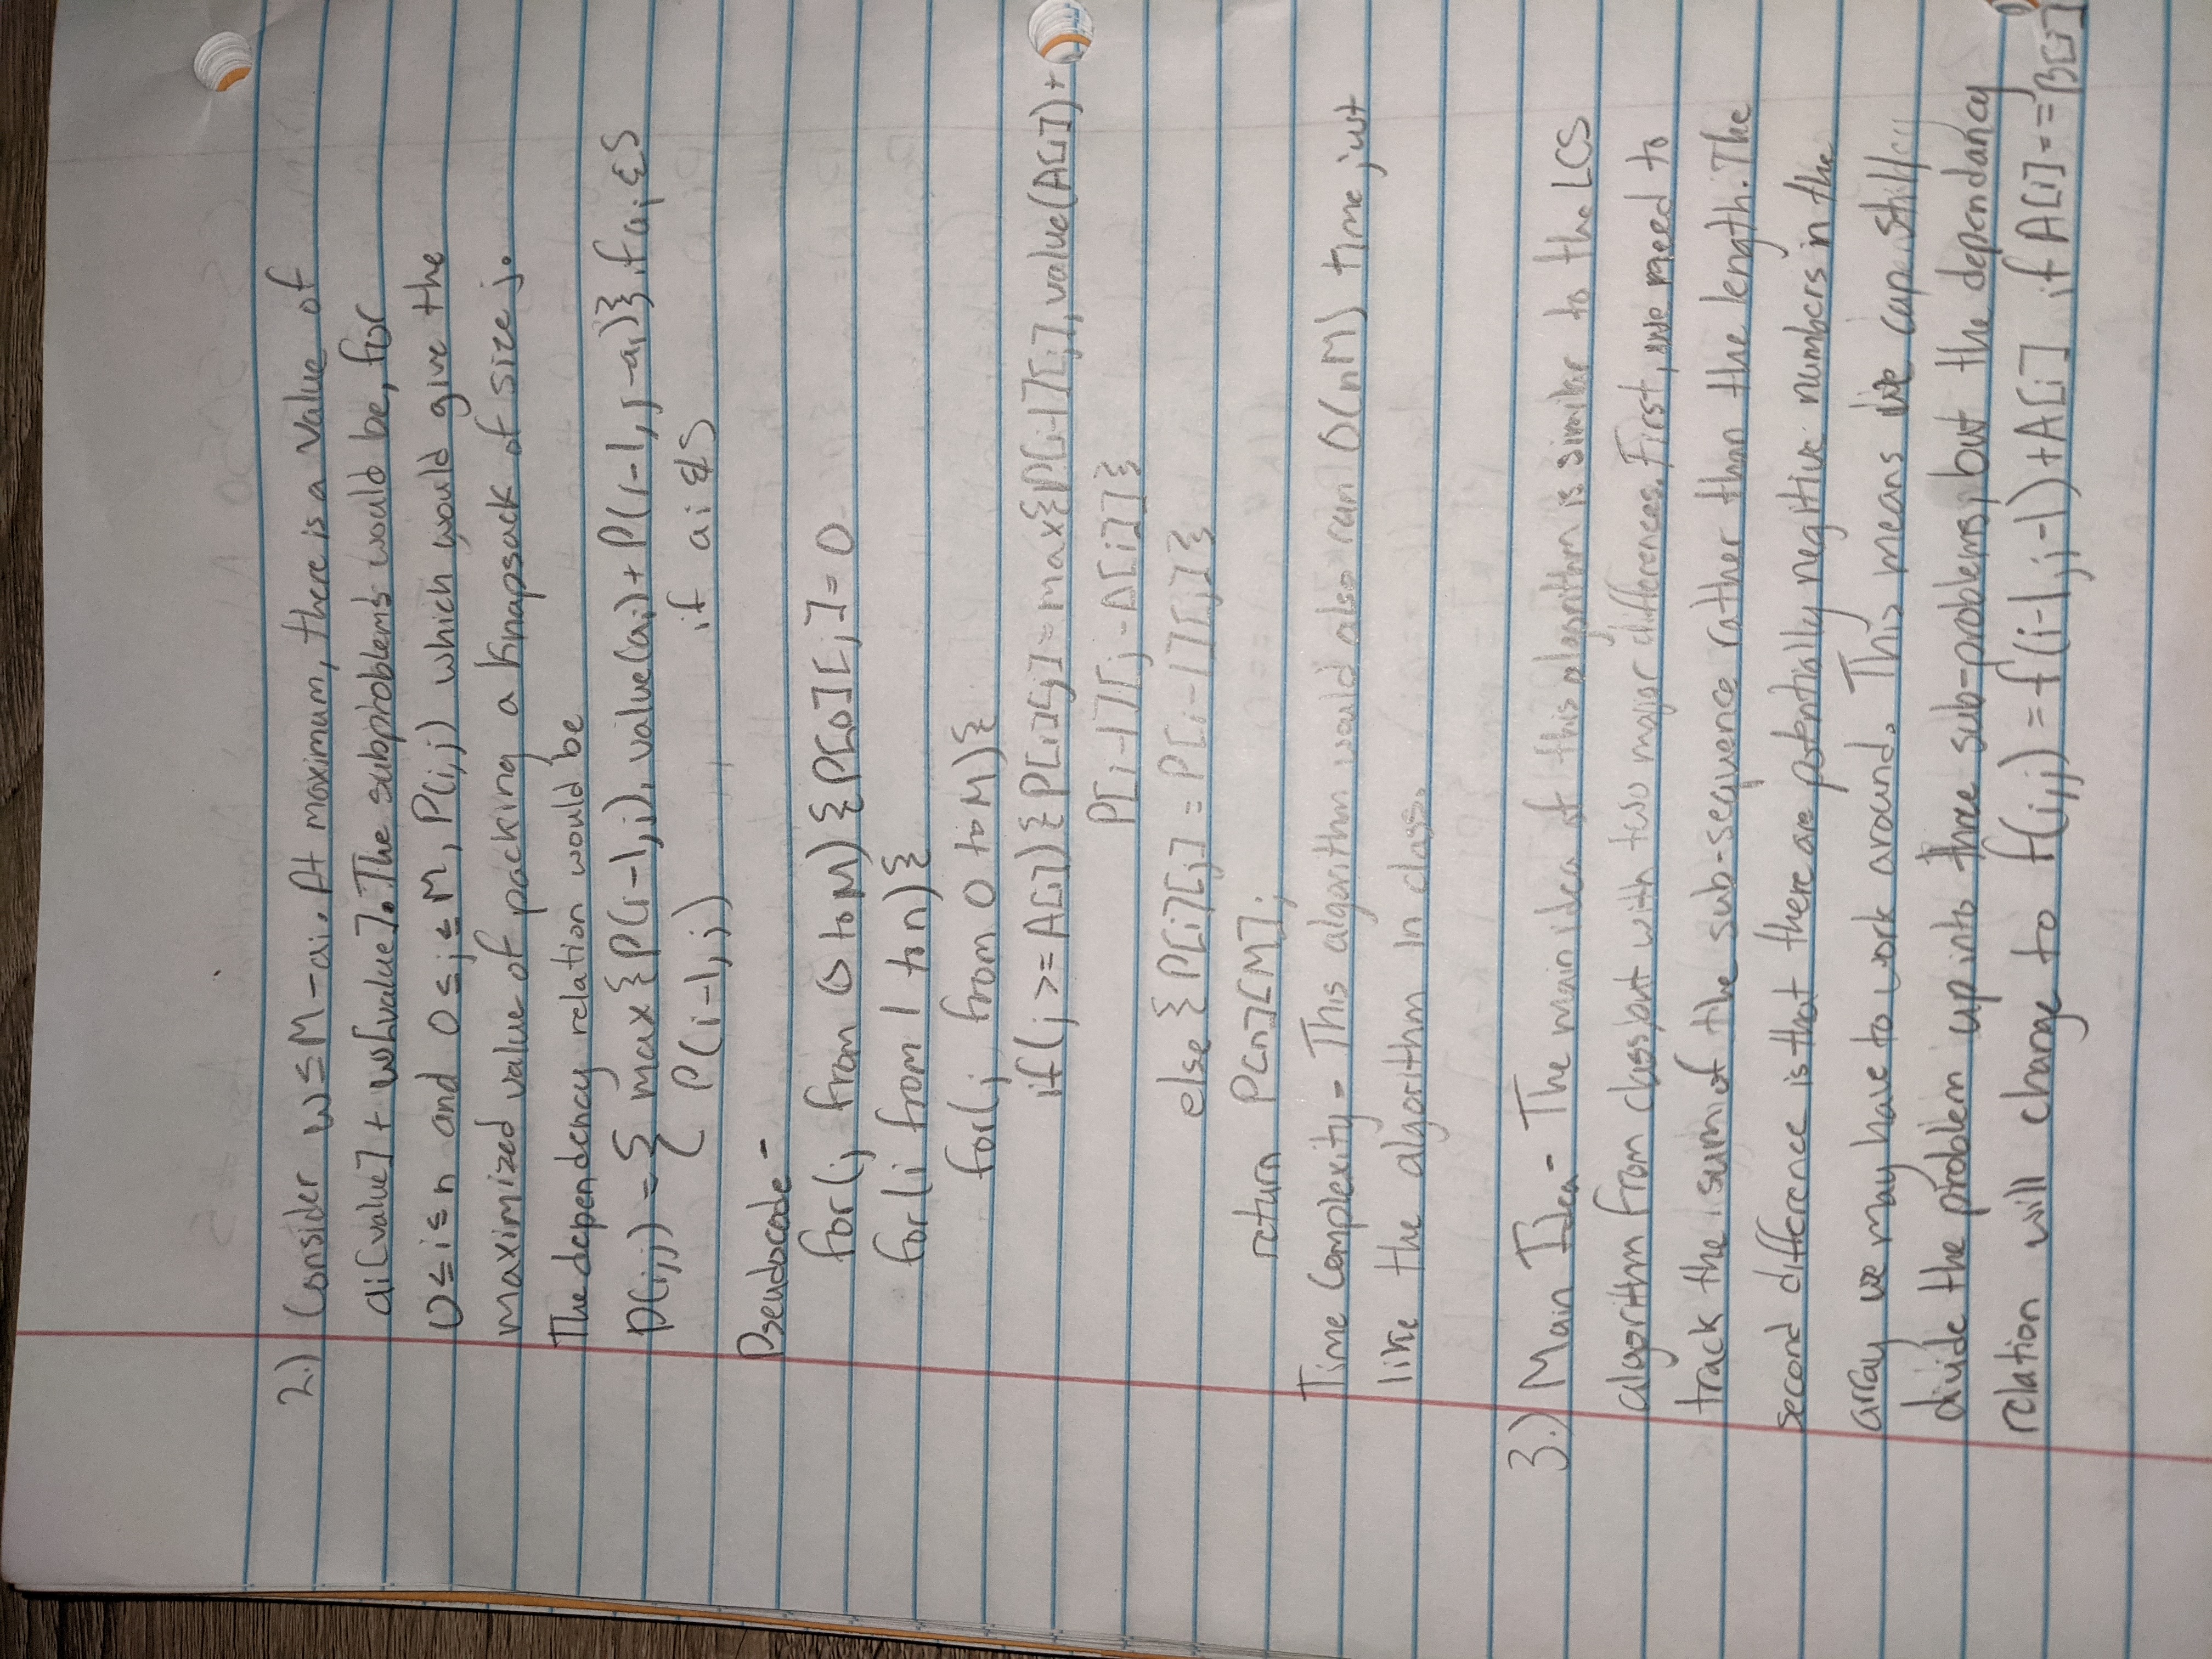 2.) Consider w ≤ M - ai. At maximum, there is a value of
ai[value] + w[value]. The subproblems would be, for
0 ≤ i ≤ n and 0 ≤ j ≤ M, P(i,j) which would give the
maximized value of packing a Knapsack of size j.
The dependency relation would be
P(i,j) = { max{P(i-1,j), value(ai) + P(i-1, j-ai)} if ai ∈ S
P(i-1,j) if ai ∉ S
Pseudocode -
for(j from 0 to M) {P[0][j] = 0
for(i from 1 to n){
for(j from 0 to M){
if(j >= A[i]) {P[i][j] = max{P[i-1][j], value(A[i]) +
P[i-1][j-A[i]]}
else {P[i][j] = P[i-1][j]}
return P[n][M];
Time Complexity - This algorithm would also run O(nM) time just
like the algorithm in class.
3.) Main Idea - The main idea of this algorithm is similar to the LCS
algorithm from class, but with two major differences. First, we need to
track the sum of the sub-sequence rather than the length. The
second difference is that there are potentially negitive numbers in the
array we may have to work around. This means we can still
divide the problem up into three sub-problems, but the dependancy
relation will change to f(i,j) = f(i-1,j-1) + A[i] if A[i] == B[j]